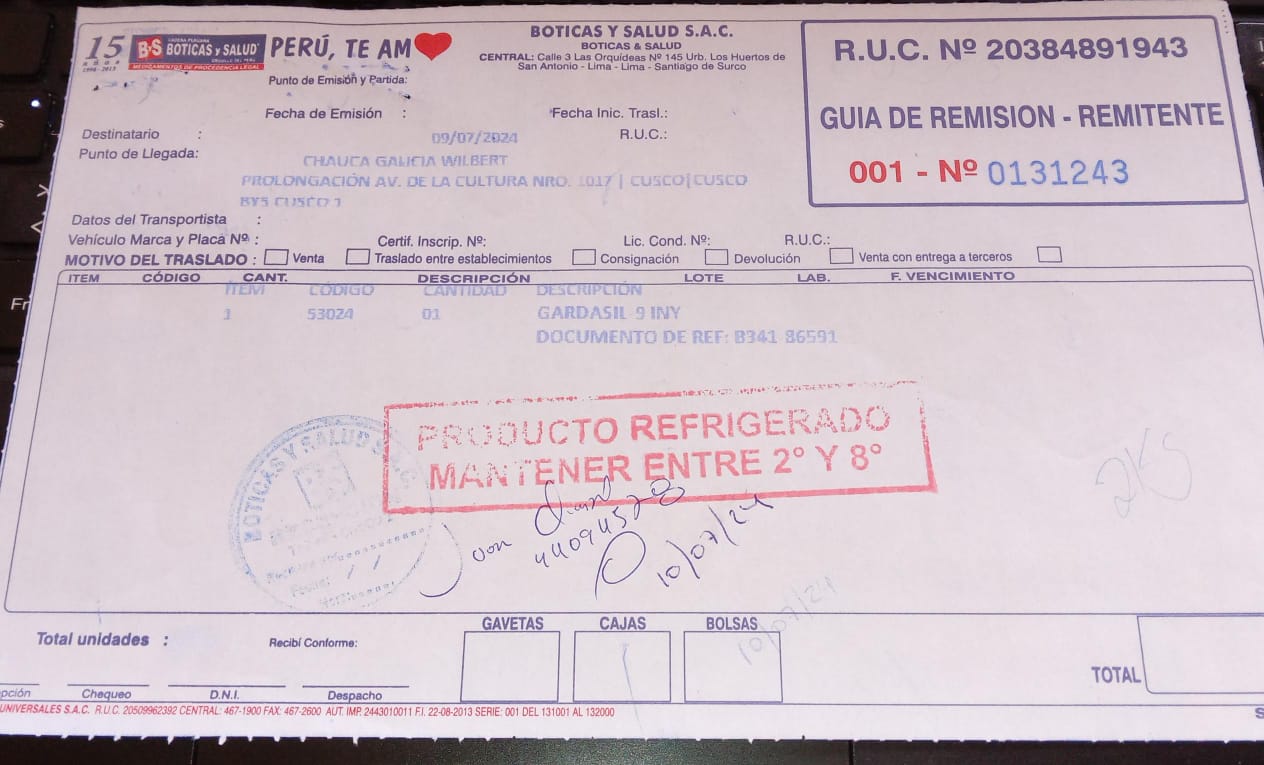 15 AÑOS 1998 - 2013
CADENA PERUANA
B&S BOTICAS y SALUD
ORGULLO DEL PERU
MEDICAMENTOS DE PROCEDENCIA LEGAL
PERÚ, TE AM
BOTICAS Y SALUD S.A.C.
BOTICAS & SALUD
CENTRAL: Calle 3 Las Orquídeas Nº 145 Urb. Los Huertos de
San Antonio - Lima - Lima - Santiago de Surco
R.U.C. Nº 20384891943
GUIA DE REMISION - REMITENTE
001 - Nº 0131243
Punto de Emisión y Partida:
Fecha de Emisión :
Fecha Inic. Trasl.:
09/07/2024
Destinatario :
R.U.C.:
Punto de Llegada:
CHAUCA GALICIA WILBERT
PROLONGACIÓN AV. DE LA CULTURA NRO. 1017 | CUSCO|CUSCO
BYS CUSCO 1
Datos del Transportista :
Vehículo Marca y Placa Nº : Certif. Inscrip. Nº: Lic. Cond. Nº: R.U.C.:
MOTIVO DEL TRASLADO : Venta Traslado entre establecimientos Consignación Devolución Venta con entrega a terceros
ITEM CÓDIGO CANT. DESCRIPCIÓN LOTE LAB. F. VENCIMIENTO
ITEM CÓDIGO CANTIDAD DESCRIPCIÓN
1 53024 01 GARDASIL 9 INY
DOCUMENTO DE REF: B341 86591
PRODUCTO REFRIGERADO
MANTENER ENTRE 2° Y 8°
BOTICAS Y SALUD S.A.C.
Fecha: / /
44094528
10/07/24
2K5
10/07/24
Total unidades :
Recibí Conforme:
GAVETAS CAJAS BOLSAS
TOTAL
Chequeo D.N.I. Despacho
UNIVERSALES S.A.C. R.U.C. 20509962392 CENTRAL: 467-1900 FAX: 467-2600 AUT. IMP. 2443010011 F.I. 22-08-2013 SERIE: 001 DEL 131001 AL 132000